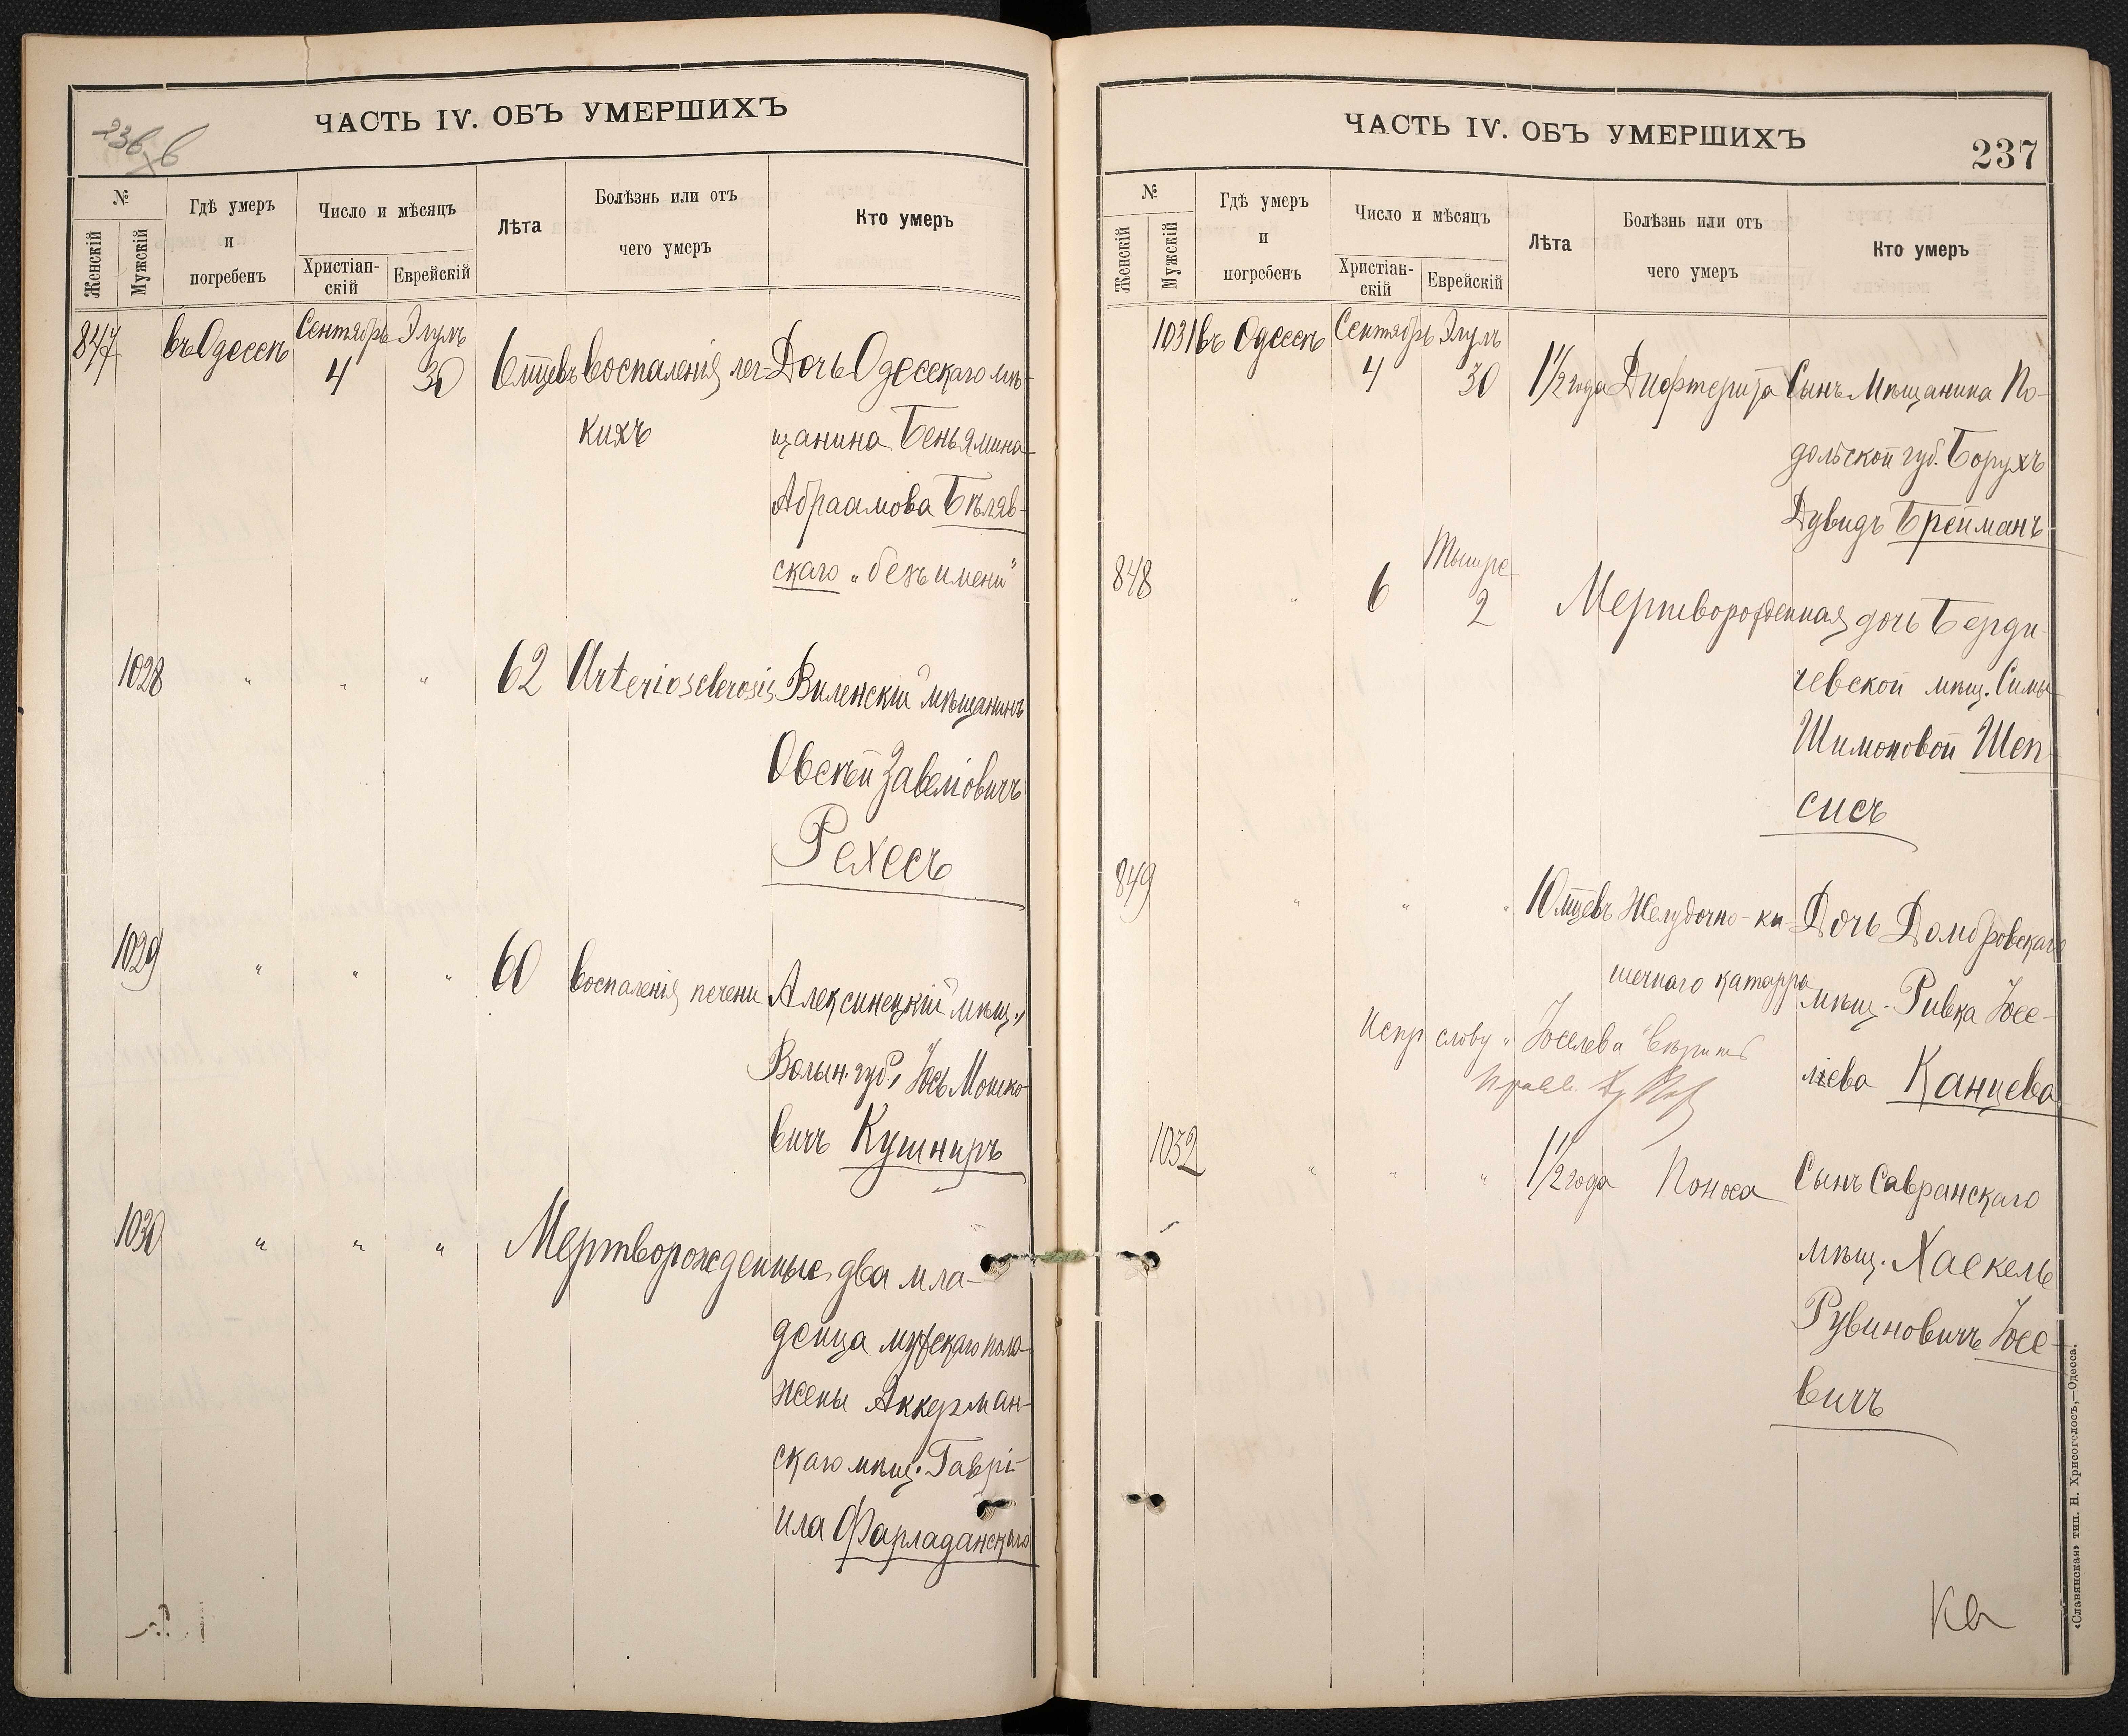 ЧАСТЬ IV. ОБЪ УМЕРШИХЪ
№
Женскій
Мужскій
Гдѣ умеръ
и
погребенъ
Число и мѣсяцъ
Христіан-
скій
Еврейскій
Лѣта
Болѣзнь или отъ
чего умеръ
Кто умеръ
847 въ Одессѣ Сентябрь Элулъ
4 30 6 мцевъ воспаленія лег- Дочь Одесскаго мѣ-
кихъ щанина Беньямина
Абраамова Бѣляв-
скаго „безъ имени"
1028 " " " 62 Arteriosclerosis Виленскій мѣщанинъ
Овсѣй Завеліовичъ
Рехесъ
1029 " " " 60 воспаленія печени Алексинецкій мѣщ.,
Волын. губ., Іось Мошко-
вичъ Кушниръ
1030 " " " Мертворожденные два мла-
денца мужскаго пола
жены Аккерман-
скаго мѣщ. Гаврі-
ила Фарладанскаго
ЧАСТЬ IV. ОБЪ УМЕРШИХЪ
237
№
Женскій
Мужскій
Гдѣ умеръ
и
погребенъ
Число и мѣсяцъ
Христіан-
скій
Еврейскій
Лѣта
Болѣзнь или отъ
чего умеръ
Кто умеръ
1031 въ Одессѣ Сентябрь Элулъ
4 30 1 1/2 года Дифтерита Сынъ Мѣщанина По-
дольской губ. Борухъ
Дувидъ Брейманъ
Тышре
848 " 6 2 Мертворожденная дочь Берди-
чевской мѣщ. Симы
Шимоновой Шеп-
сисъ
849 " " " 10 мцевъ Желудочно-ки- Дочь Домбровскаго
шечнаго катарра мѣщ. Ривка Іосе-
Испр. слову „Іоселева" вѣрить
лева Канцева
1032 " " " 1 1/2 года Поноса Сынъ Савранскаго
мѣщ. Хаскель
Рувиновичъ Іосе-
вичъ
«Славянская» тип. Н. Хрисогелосъ,—Одесса.